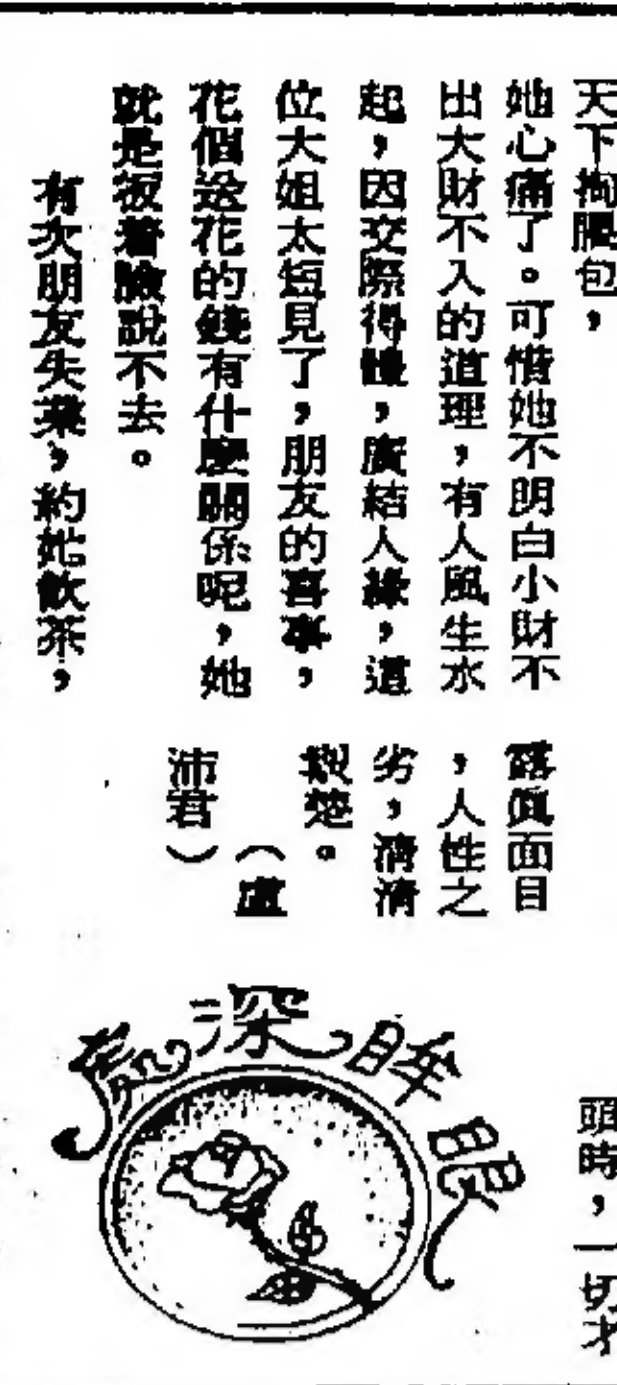 天下掏腰包，
她心痛了。可惜她不明白小財不
出大財不入的道理，有人風生水
起，因交際得體，廣結人緣，這
位大姐太短見了，朋友的喜事，
花個送花的錢有什麼關係呢，她
就是扳着臉說不去。
有次朋友失業，約她飲茶，
頭時，一切才
露真面目
，人性之
劣，清清
楚楚。
（盧
沛君）
眼眸深處